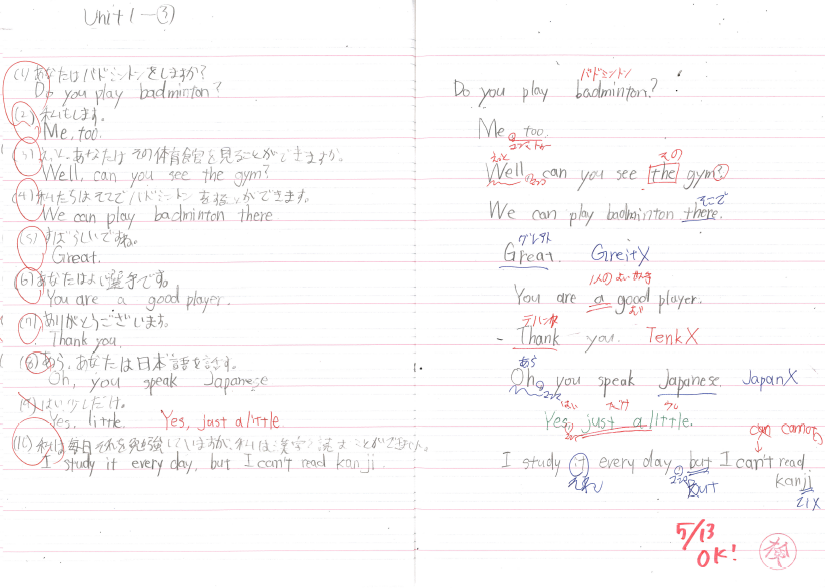 Unit 1-③
(1) あなたはバドミントンをしますか?
Do you play badminton?
(2) 私もします。
Me, too.
(3) えっと、あなたはその体育館を見ることができますか。
Well, can you see the gym?
(4) 私たちはそこでバドミントンをができます。
We can play badminton there
(5) すばらしいですね。
Great.
(6) あなたはよい選手です。
You are a good player.
(7) ありがとうございます。
Thank you.
(8) あら、あなたは日本語を話す。
Oh, you speak Japanese
(9) はい少しだけ。
Yes, little. Yes, just a little.
(10) 私は毎日それを勉強していますが、私は漢字を読むことができません。
I study it every day, but I can't read kanji.
バドミントン
Do you play badminton?
Me, too.
コンマ
えっと その
Well, can you see the gym?
そこで
We can play badminton there.
グレイト
Great. GreitX
1人のよい選手
You are a good player.
Thank you. TenkX
あら
Oh, you speak Japanese. JapanX
はい だけ
Yes, just a little.
can cannot
I study it every day, but I can't read
kanji
But
5/13
OK!